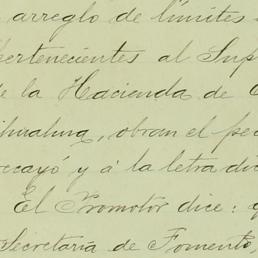 arreglo de límites
pertenecientes al Sup
de la Hacienda de
ihuahua, obran el pe
recayó y á la letra dic
El Promotor dice: q
Secretaría de Fomento,